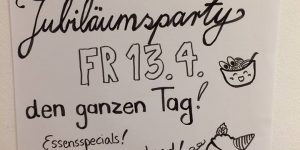 Jubiläumsparty
FR 13.4.
den ganzen Tag!
Essensspecials!